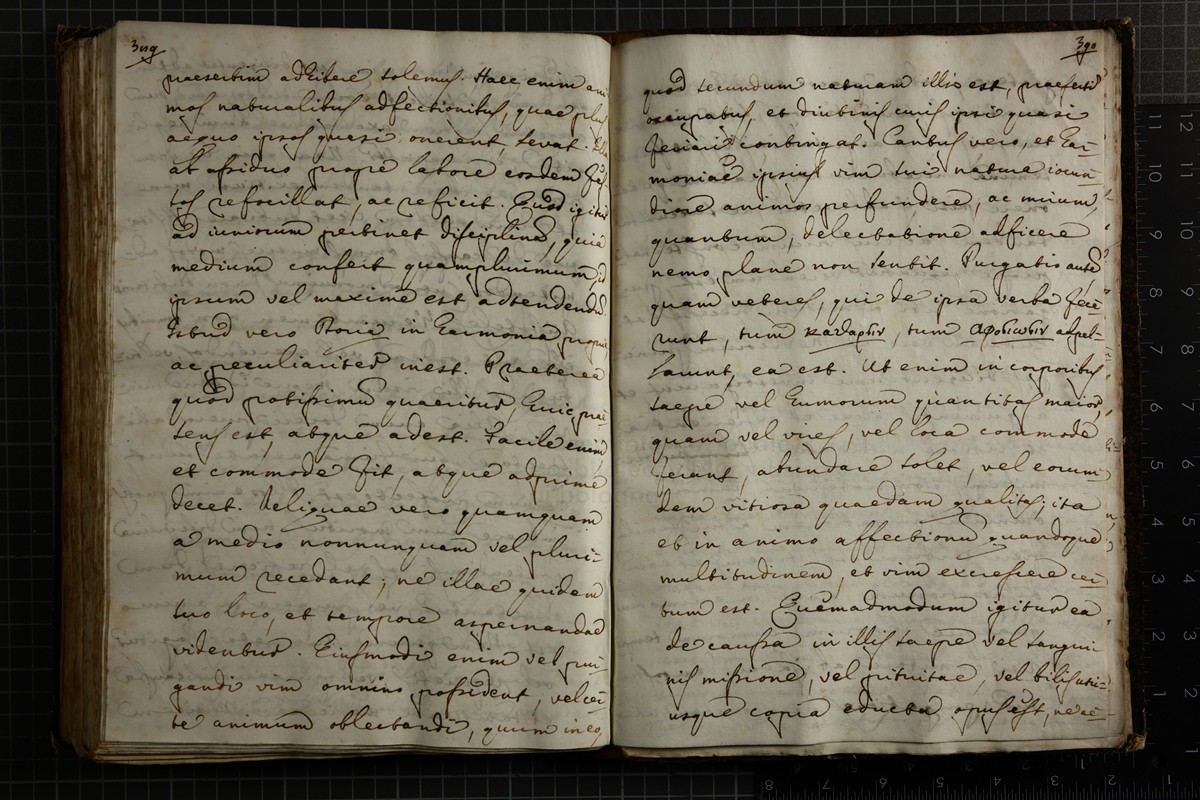 389
praesertim adhibere solemus. Haec enim ani
mos naturalibus adfectionibus, quae plus
aequo ipsos quasi onerent, levat. Illa
ab assiduo prope labore eosdem fes
sos refocillat, ac reficit. Quod igitur
ad iuniorum pertinet disciplinã, quia
medium confert quamplurimum, id
ipsum vel maxime est adtendendũ.
Istud vero Doria in harmonia proprie,
ac peculiariter inest. Praeterea
quod potissimũ quaeritur, huic prae
sens est, atque adest. Facile enim
et commode fit, atque adprime
decet. Reliquae vero quamquam
a medio nonnunquam vel pluri-
mum recedant; ne illae quidem
suo loco, et tempore aspernandae
videntur. Eiusmodi enim vel pur-
gandi vim omnino possident, vel cer
te animum oblectandi, quum in eo,
390
quod secundum naturam illis est, praesertĩ
occupatus, et diutinis curis ipsi quasi
feriari contingat. Cantus vero, et har-
moniae ipsius vim sui natura iocun
diore animos perfundere, ac mirum,
quantum, delectatione adficere
nemo plane non sentit. Purgatio autẽ
quam veteres, qui de ipsa verba fece
runt, tum καθαρσιν, tum αφοσιωσιν adpel-
larunt, ea est. Ut enim in corporibus
saepe vel humorum quantitas maior,
quam vel vires, vel loca commode
ferant, abundare solet, vel eorum
dem vitiosa quaedam qualitas; ita
et in animo affectionũ quandoque
multitudinem, et vim excrescere cer
tum est. Quemadmodum igitur ea
de caussa in illis saepe vel sangui
nis missione, vel pituitae, vel bilis utri-
usque copia educta opus est, ne ae-